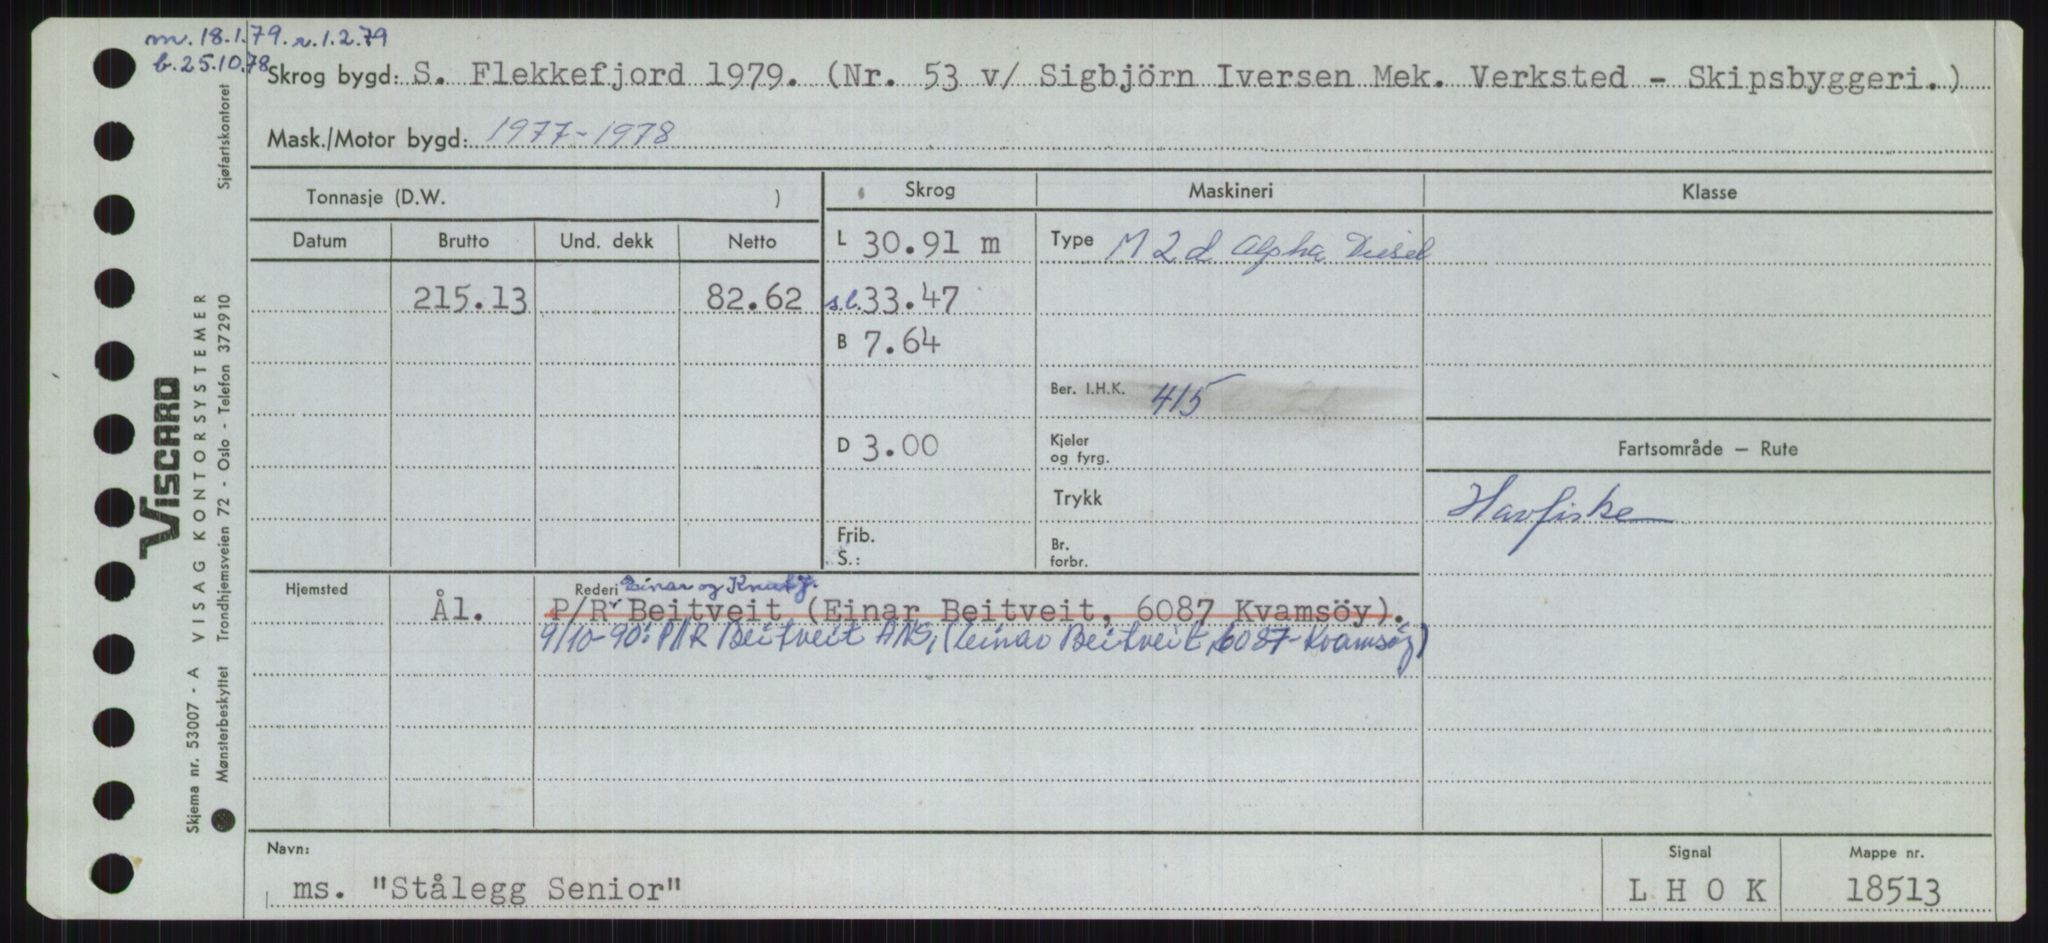 m. 18.1.79. r. 1.2.79
b. 25.10.78
Skrog bygd: S. Flekkefjord 1979. (Nr. 53 v/ Sigbjörn Iversen Mek. Verksted - Skipsbyggeri.)
Mask./Motor bygd: 1977-1978
Tonnasje (D.W. )
Skrog
Maskineri
Klasse
Datum Brutto Und. dekk Netto
L 30.91 m
Type M 2 d Alpha Diesel
215.13 82.62
s.l. 33.47
B 7.64
Ber. I.H.K. 415
D 3.00
Kjeler
og fyrg.
Fartsområde — Rute
Trykk
Havfiske
Frib.
S.:
Br.
forbr.
Hjemsted
Rederi Einar og Knut J.
Ål.
P/R Beitveit (Einar Beitveit, 6087 Kvamsöy).
9/10-90: P/R Beitveit ANS, (Einar Beitveit, 6087-Kvamsöy)
Navn:
ms. "Stålegg Senior"
Signal
L H O K
Mappe nr.
18513
Skjema nr. 53007 - A VISAG KONTORSYSTEMER
VISCARD
Mønsterbeskyttet Trondhjemsveien 72 - Oslo - Telefon 372910 Sjøfartskontoret